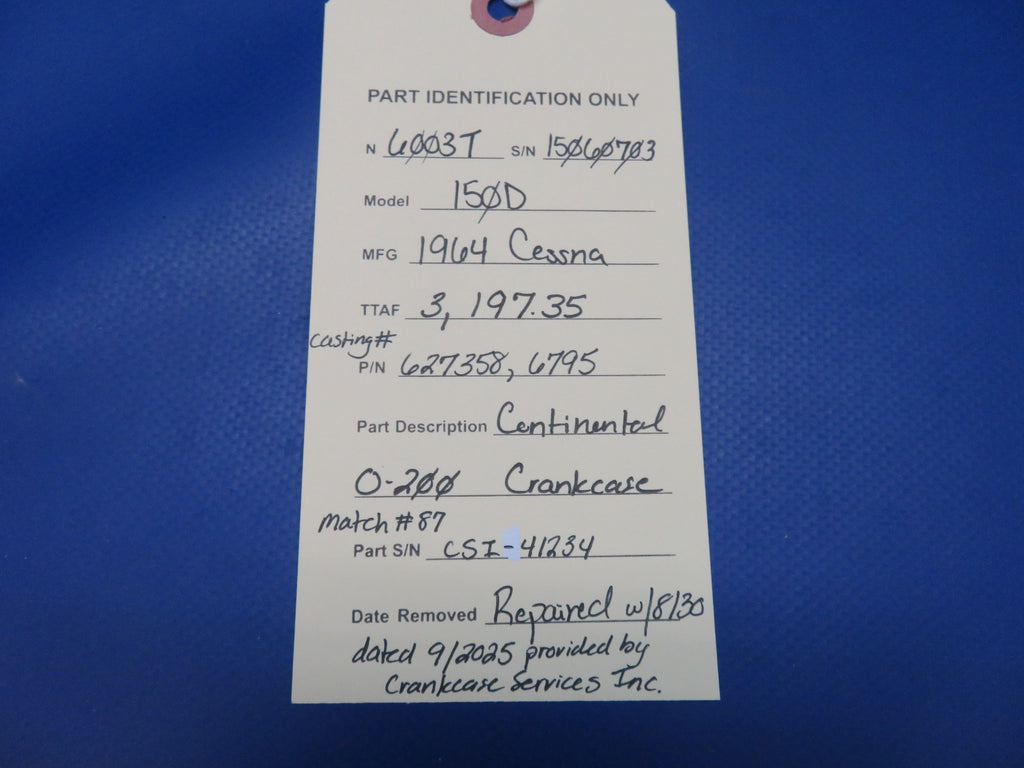 PART IDENTIFICATION ONLY
N 6003T S/N 15060703
Model 150D
MFG 1964 Cessna
TTAF 3,197.35
Casting#
P/N 627358, 6795
Part Description Continental
O-200 Crankcase
Match #87
Part S/N CSI-41234
Date Removed Repaired w/8130
dated 9/2025 provided by
Crankcase Services Inc.